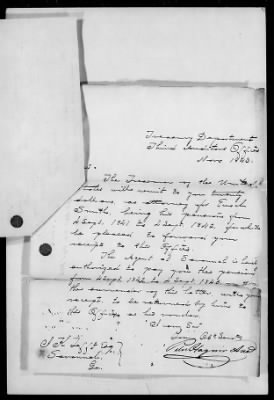 Treasury Department
Third Auditors Office
Nov 1843.
The Treasurer of the United
States will remit to you twenty
dollars, as attorney for
Smith, being his pension from
4 Sept. 1841 to 4 Sept. 1842, for which
be pleased to forward your
receipt to this Office.
The Agent at Savannah is
authorized to pay you the pension
from 4 Sept. 1842 to 4 Sept. 1843 on
the surrender of this letter with your
receipt, to be returned by him to
this Office as his voucher.
I am, Sir
Your Obt Servt
Peter Hagner Aud
Esq
Savannah
Geo.